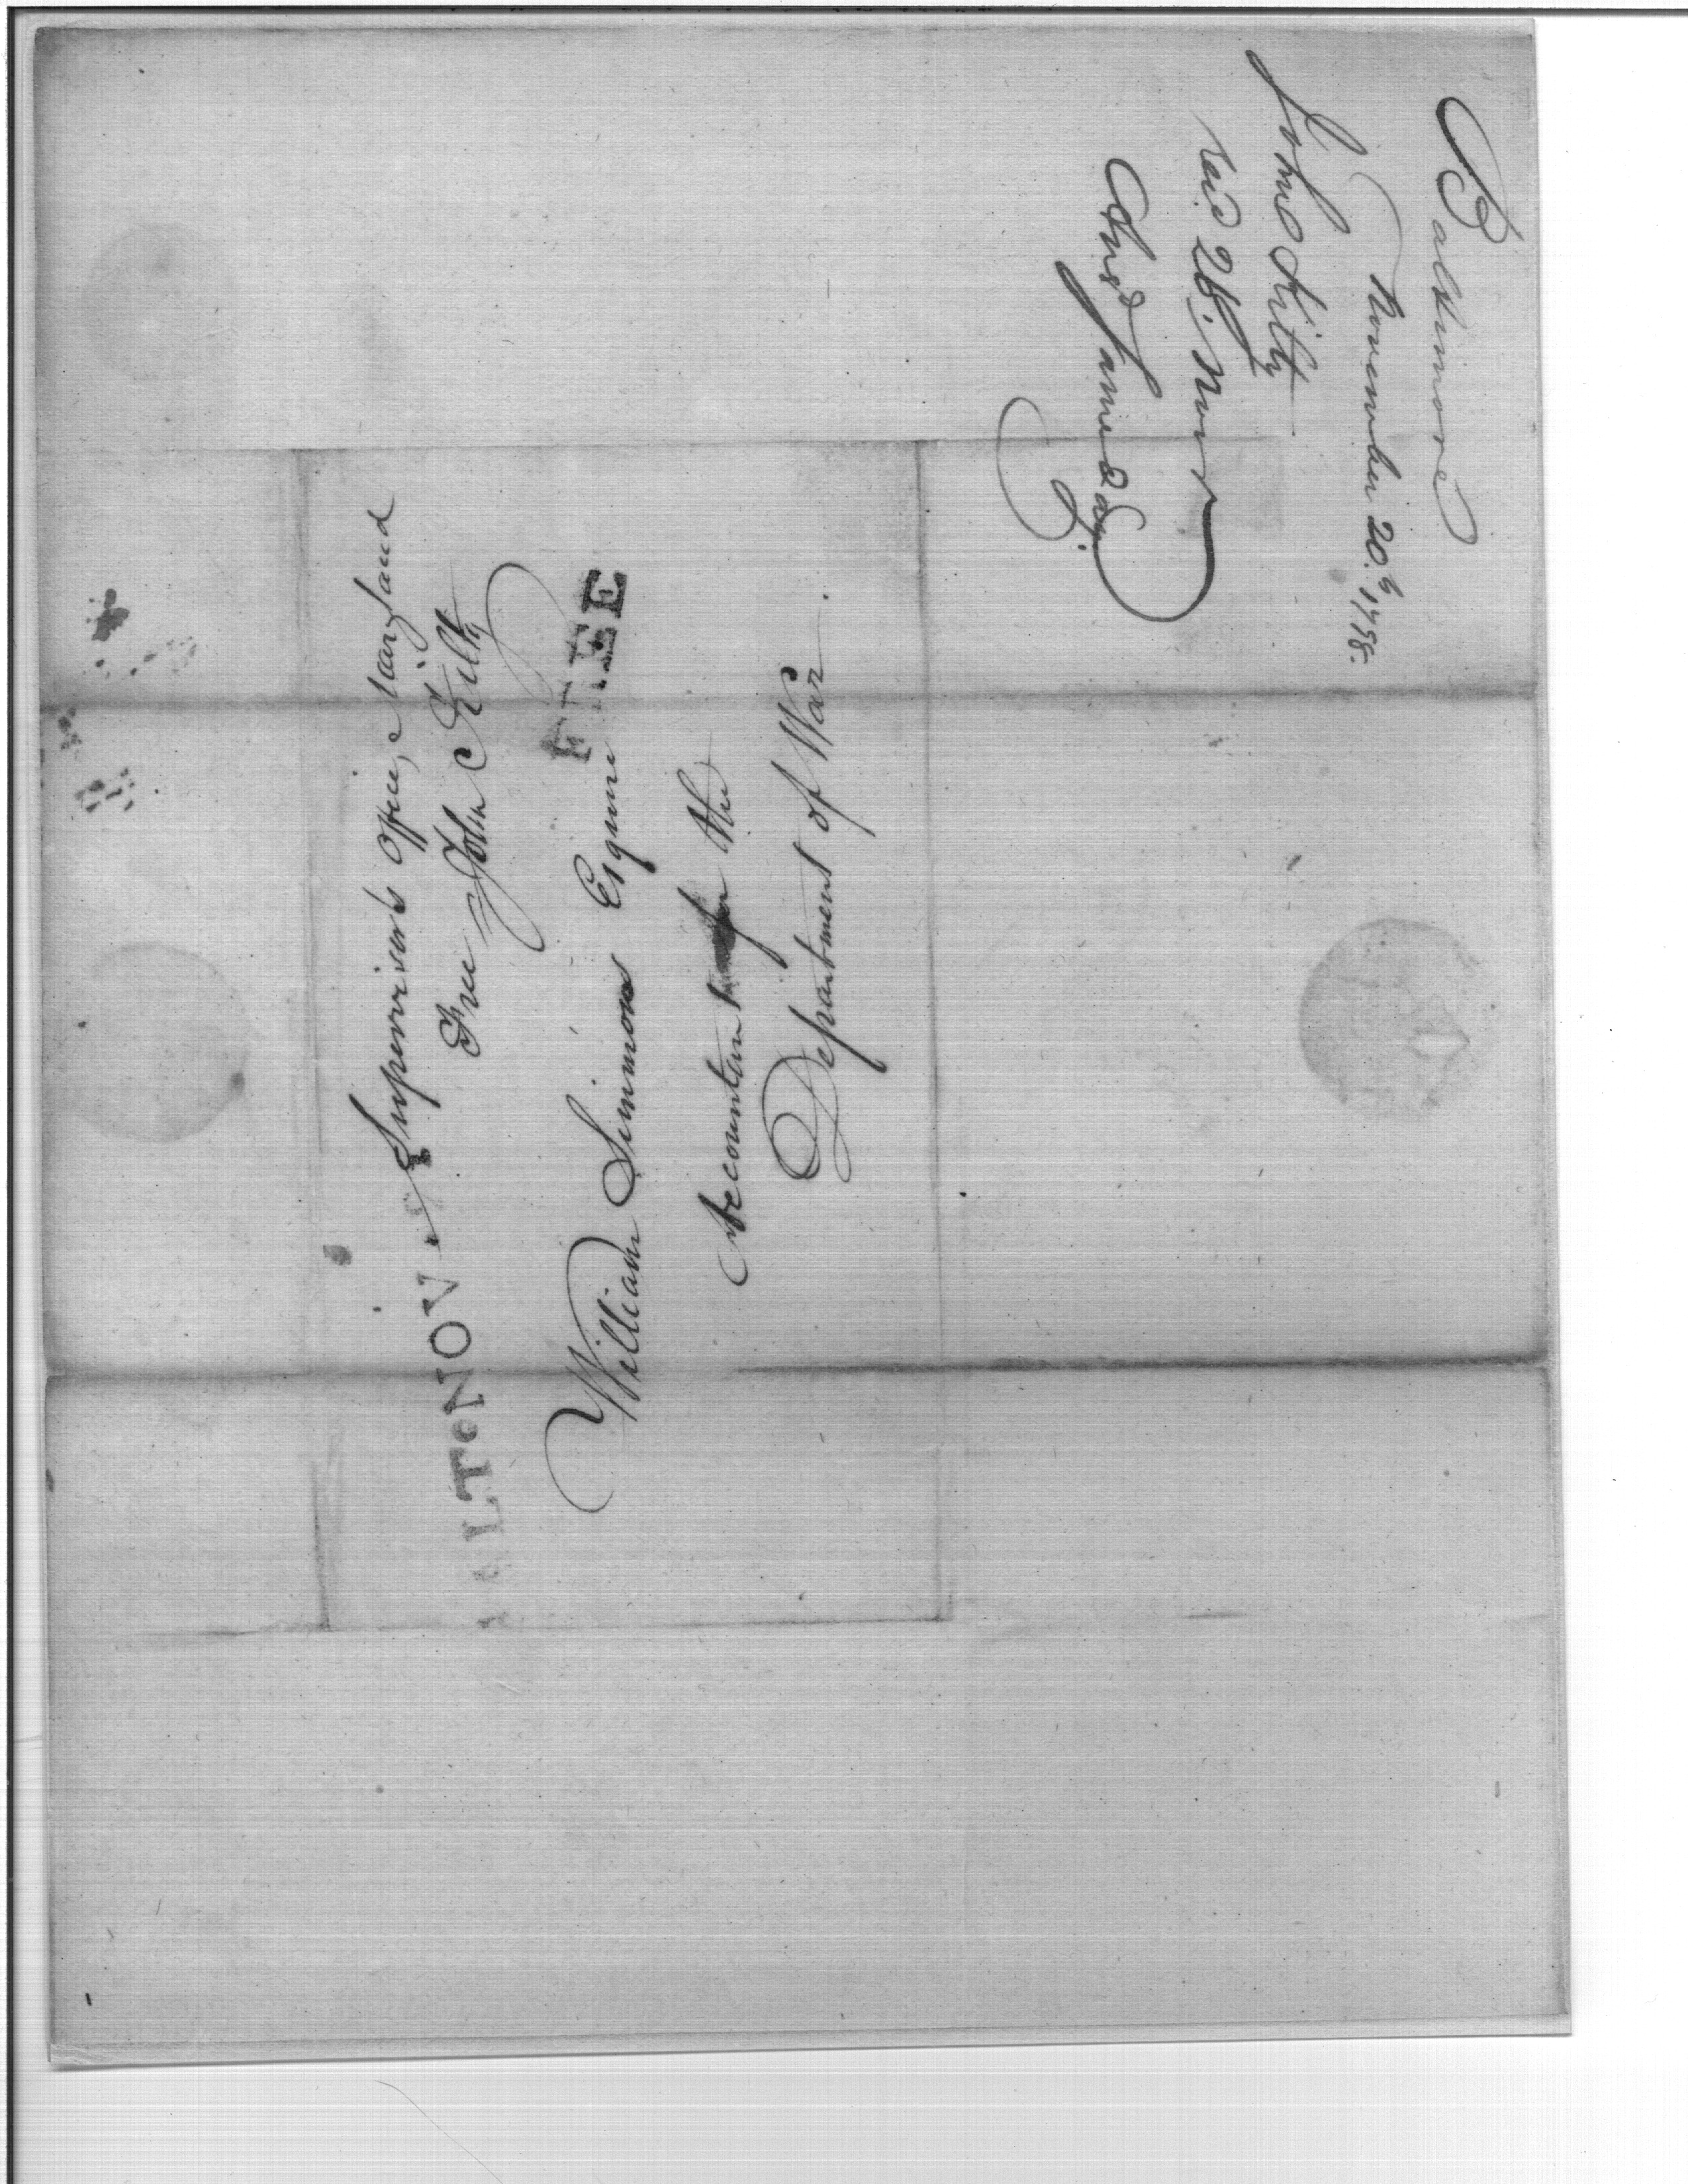 Baltimore
November 20.th 1798.
John Kilty
Rec'd 28. Novr
Ansd same day.
Supervisor's Office, Maryland
Free John Kilty
BALT NOV
FREE
William Simmons Esquire
Accountant for the
Department of War.